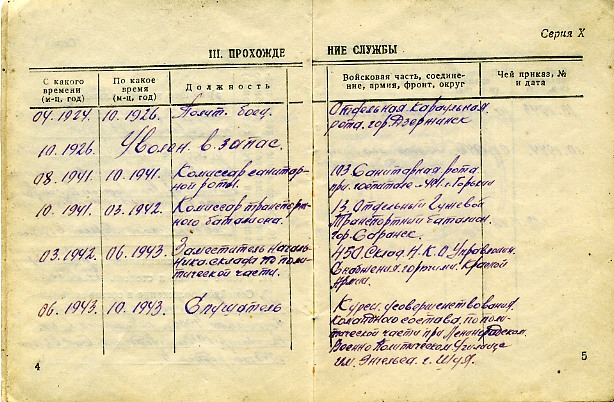 Серия X
III. ПРОХОЖДЕ НИЕ СЛУЖБЫ
С какого времени (м-ц, год)
По какое время (м-ц, год)
Должность
Войсковая часть, соедине-
ние, армия, фронт, округ
Чей приказ, №
и дата
04.1924. 10.1926. Полит. боец. Отдельная Караульная
рота. гор. Дзержинск
10.1926. Уволен. в. запас.
08.1941. 10.1941. Комиссар санитар-
ной роты. 103 Санитарная рота
при госпитале г. Горький
10.1941. 03.1942. Комиссар транспорт-
ного баталиона. 13 Отдельный Гужевой
Транспортный Баталион.
гор. Саранск.
03.1942. 06.1943. Заместитель началь-
ника склада по поли-
тической части. 450. Склад. Н.К.О. Управления.
Снабжения. горючим. Красной
Армии.
06.1943. 10.1943. Слушатель Курсы усовершенствования.
командного состава, по поли-
тической части при Ленинградском.
Военно Политическом Училище
им. Энгельса. г. Шуя.
4
5